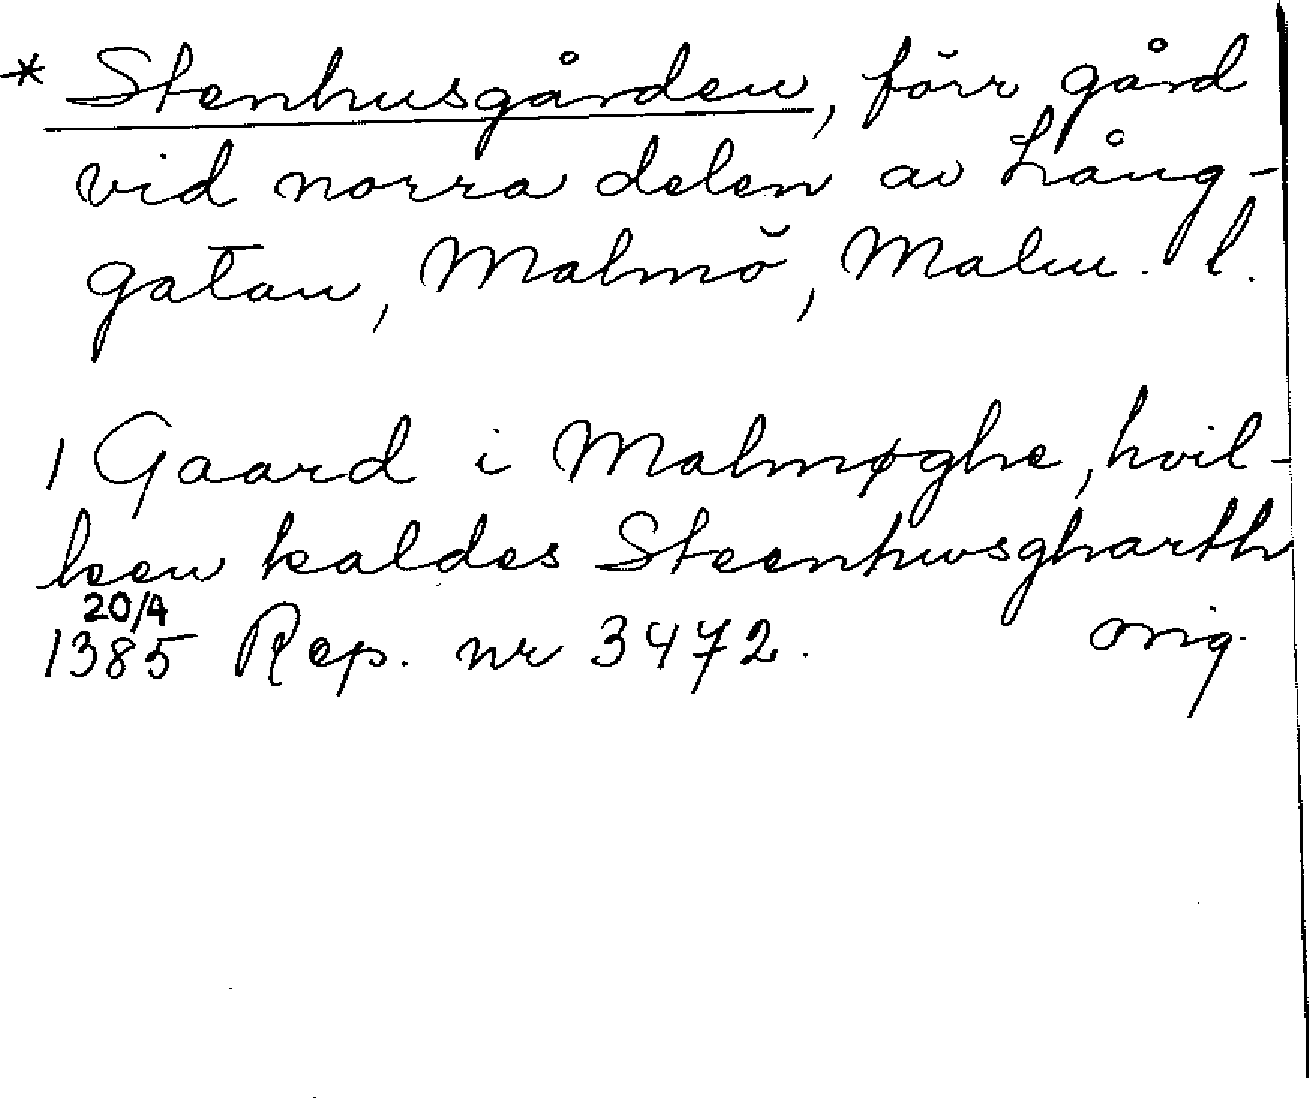 * Stenhusgården, förr gård
vid norra delen av Lång-
gatan, Malmö, Malm. l.
1 Gaard i Malmøghe, hvil-
ken kaldes Steenhwsgharth
20/4
1385 Rep. nr 3472. orig.